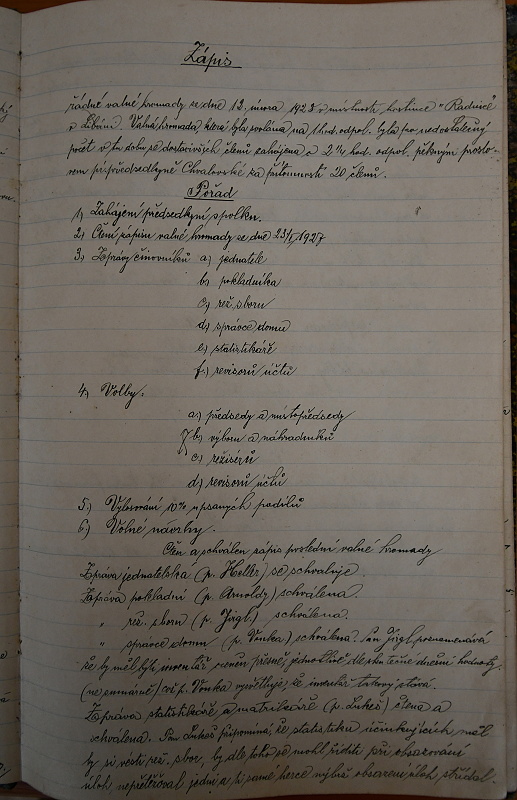 Zápis
řádné valné hromady ze dne 12. února 1928 v místnosti hostince "Radnice"
v Libáni. Valná hromada, která byla svolána na 1 hod. odpol. byla pro nedostatečný
počet v tu dobu se dostavivších členů zahájena o 2¼ hod. odpol. pěkným proslo-
vem př. předsedkyně Chvalovské za přítomnosti 20 členů.
Pořad
1) Zahájení předsedkyní spolku.
2) Čtení zápisu valné hromady ze dne 23/I. 1927
3) Zprávy činovníků a) jednatele
b) pokladníka
c) rež. sboru
d) správce domu
e) statistikáře
f) revisorů účtů
4) Volby:
a) předsedy a místopředsedy
b) výboru a náhradníků
c) režisérů
d) revisorů účtů
5.) Vylosování 10% upsaných podílů
6.) Volné návrhy.
Čten a schválen zápis poslední valné hromady
Zpráva jednatelská (p. Heller) se schvaluje.
Zpráva pokladní (p. Arnoldy) schválena.
" rež. sboru (p. Jirgl) schválena.
" správce domu (p. Vonka) schválena. Pan Jirgl poznamenává
že by měl býti inventář ceněn přesně, jednotlivě dle skutečné dnešní hodnoty.
(ne sumárně) což p. Vonka vysvětluje, že inventář takový stává.
Zpráva statistikáře a matrikáře (p. Lukeš) čtena a
schválena. Pan Lukeš připomíná, že statistiku účinkujících měl
by si vésti rež. sbor, by dle toho se mohl říditi při obsazování
úloh, nepřetěžoval jedny a ty samé herce nýbrž obsazení úloh střídal.